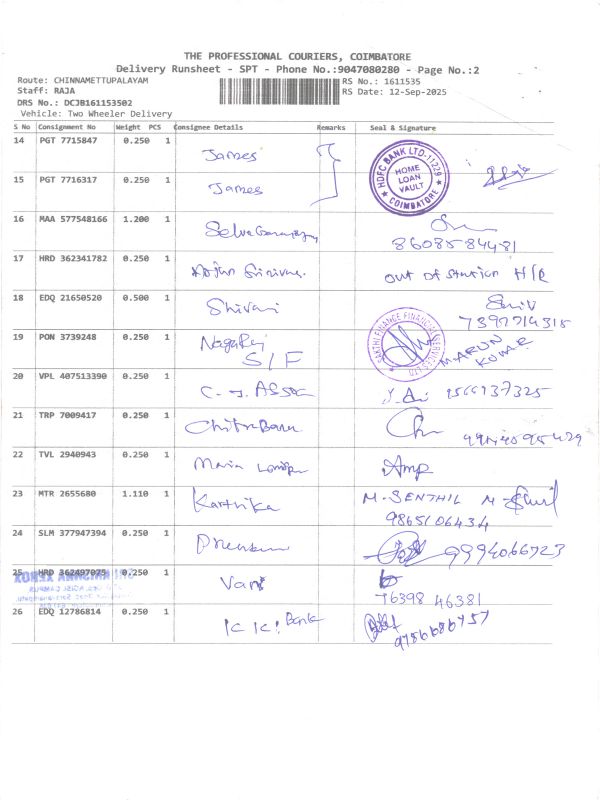 THE PROFESSIONAL COURIERS, COIMBATORE
Delivery Runsheet - SPT - Phone No.:9047080280 - Page No.:2
Route: CHINNAMETTUPALAYAM
RS No.: 1611535
Staff: RAJA
RS Date: 12-Sep-2025
DRS No.: DCJB161153502
Vehicle: Two Wheeler Delivery
S No Consignment No Weight PCS Consignee Details Remarks Seal & Signature
14 PGT 7715847 0.250 1 James
HDFC BANK LTD-11229 HOME LOAN VAULT COIMBATORE
15 PGT 7716317 0.250 1 James
16 MAA 577548166 1.200 1
8608584481
17 HRD 362341782 0.250 1 Arjun Srinivas. Out of Station H/R
18 EDQ 21650520 0.500 1 Shivani
7397714318
19 PON 3739248 0.250 1 NagaRaj S/F
SAKTHI FINANCE FINANCIAL SERVICES LTD
M.ARUN KUMAR
20 VPL 407513390 0.250 1
21 TRP 7009417 0.250 1 Chitra Banu
22 TVL 2940943 0.250 1 Maria
23 MTR 2655680 1.110 1 Karthika M-SENTHIL
9865106434
24 SLM 377947394 0.250 1 9994066723
25 HRD 362497075 0.250 1 Van
SRI KRISHNA XEROX
76398 46381
26 EDQ 12786814 0.250 1 Bank
9756686757